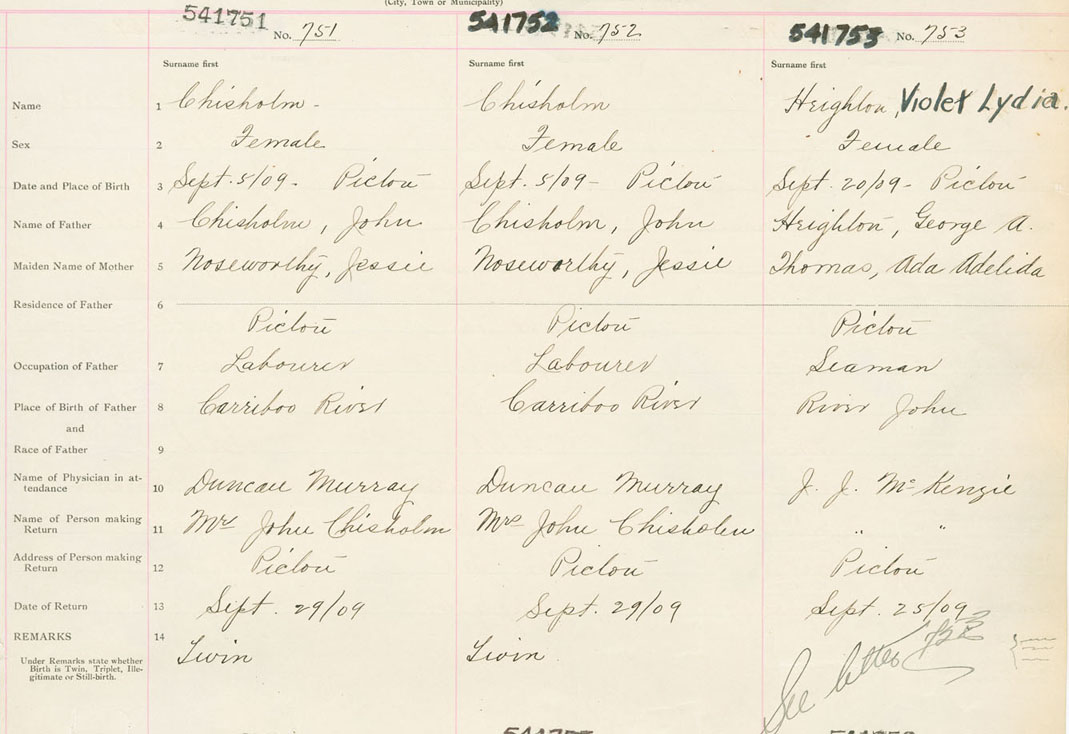 (City, Town or Municipality)
541751 No. 751 541752 No. 752 541753 No. 753
Surname first Surname first Surname first
Name 1 Chisholm - Chisholm Heighton, Violet Lydia.
Sex 2 Female Female Female
Date and Place of Birth 3 Sept. 5/09 - Pictou Sept. 5/09 - Pictou Sept. 20/09 - Pictou
Name of Father 4 Chisholm, John Chisholm, John Heighton, George A.
Maiden Name of Mother 5 Noseworthy, Jessie Noseworthy, Jessie Thomas, Ada Adelida
Residence of Father 6
Pictou Pictou Pictou
Occupation of Father 7 Labourer Labourer Seaman
Place of Birth of Father 8 Carriboo River Carriboo River River John
and
Race of Father 9
Name of Physician in at-
tendance 10 Duncan Murray Duncan Murray J. J. McKenzie
Name of Person making
Return 11 Mrs John Chisholm Mrs John Chisholm " "
Address of Person making
Return 12 Pictou Pictou Pictou
Date of Return 13 Sept. 29/09 Sept. 29/09 Sept. 25/09
REMARKS 14
Twin Twin See letter
Under Remarks state whether
Birth is Twin, Triplet, Ille-
gitimate or Still-birth.